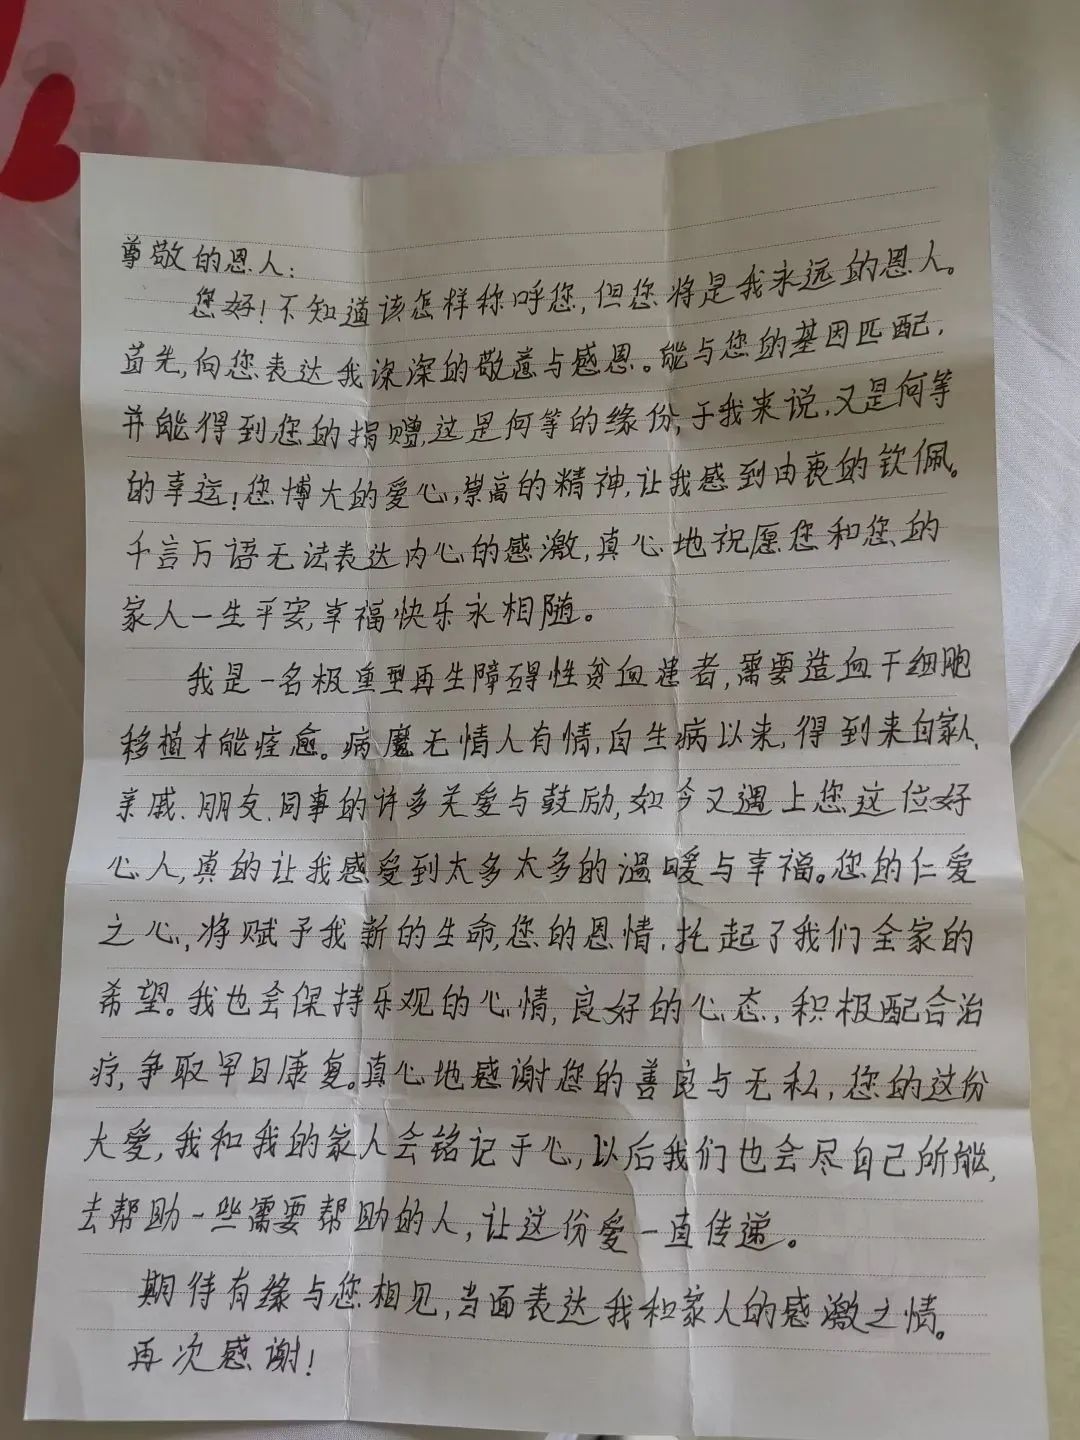 尊敬的恩人:
您好!不知道该怎样称呼您,但您将是我永远的恩人。
首先,向您表达我深深的敬意与感恩。能与您的基因匹配,
并能得到您的捐赠,这是何等的缘份,于我来说,又是何等
的幸运!您博大的爱心,崇高的精神,让我感到由衷的钦佩。
千言万语无法表达内心的感激,真心地祝愿您和您的
家人一生平安,幸福快乐永相随。
我是一名极重型再生障碍性贫血患者,需要造血干细胞
移植才能痊愈。病魔无情人有情,自生病以来,得到来自家人、
亲戚、朋友、同事的许多关爱与鼓励,如今又遇上您这位好
心人,真的让我感受到太多太多的温暖与幸福。您的仁爱
之心,将赋予我新的生命,您的恩情,托起了我们全家的
希望。我也会保持乐观的心情,良好的心态,积极配合治
疗,争取早日康复。真心地感谢您的善良与无私,您的这份
大爱,我和我的家人会铭记于心,以后我们也会尽自己所能,
去帮助一些需要帮助的人,让这份爱一直传递。
期待有缘与您相见,当面表达我和家人的感激之情。
再次感谢!